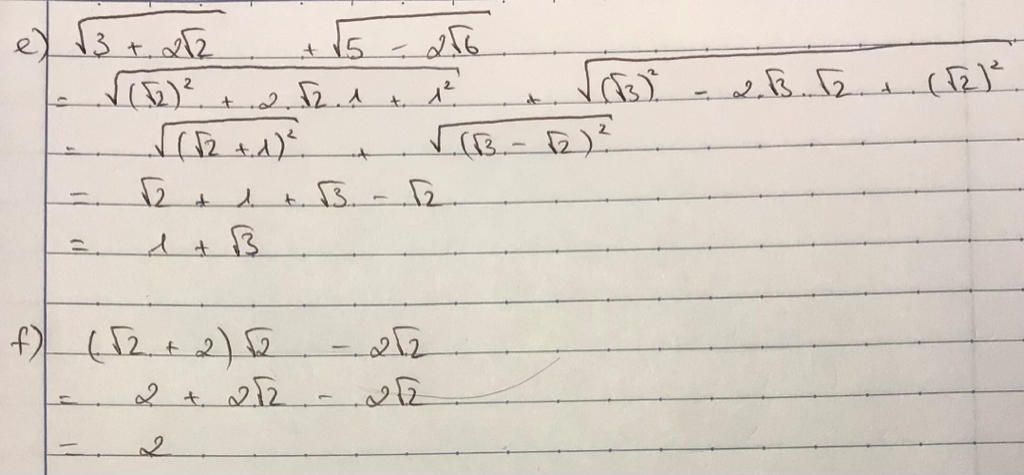 e) √(3 + 2√2) + √(5 - 2√6)
= √((√2)² + 2.√2.1 + 1²) + √((√3)² - 2.√3.√2 + (√2)²)
= √((√2 + 1)²) + √((√3 - √2)²)
= √2 + 1 + √3 - √2
= 1 + √3
f) (√2 + 2)√2 - 2√2
= 2 + 2√2 - 2√2
= 2